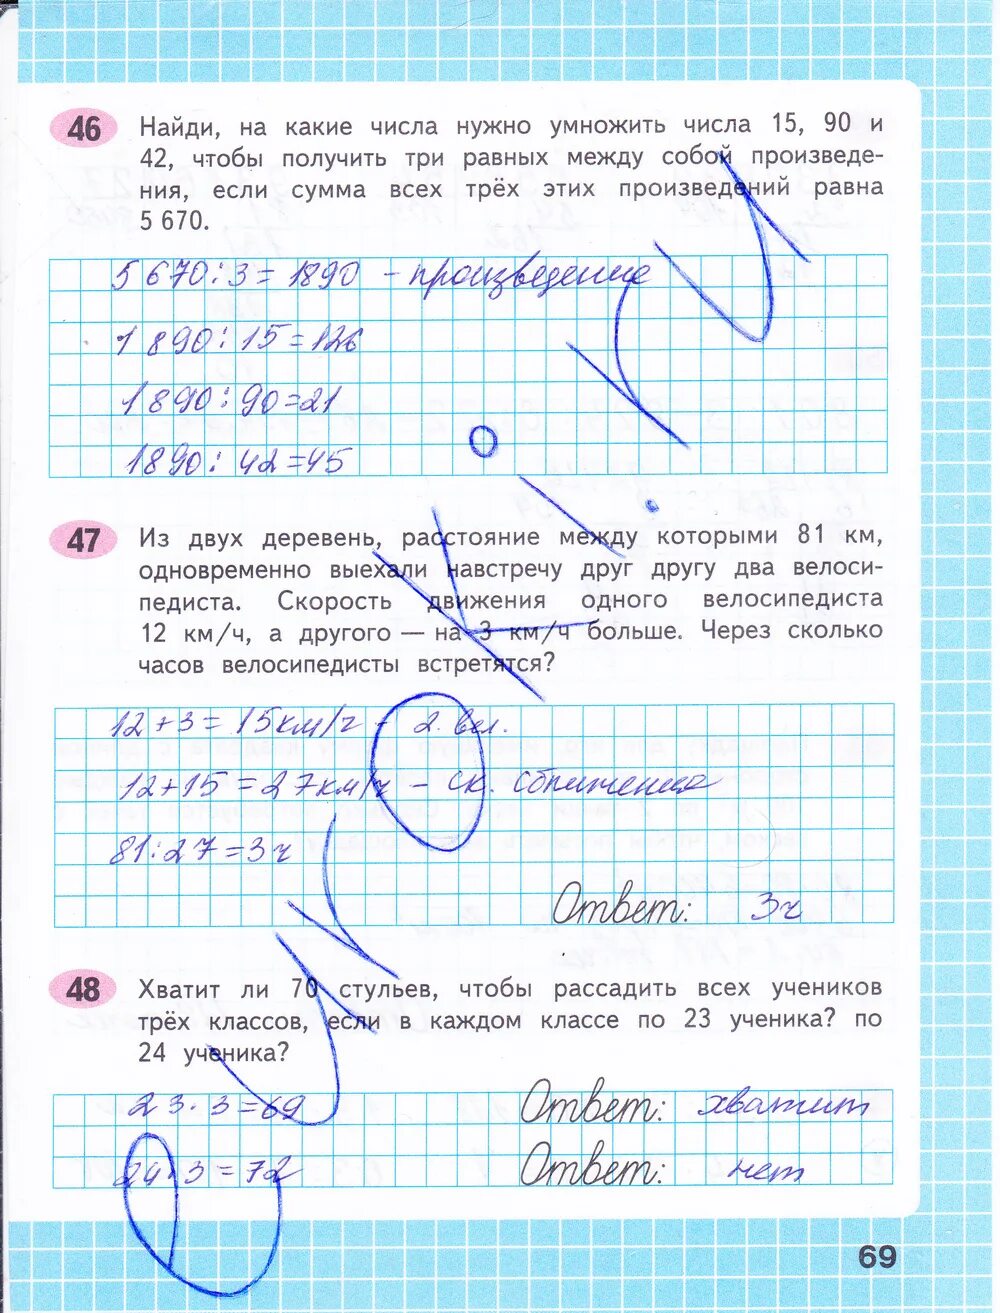 46 Найди, на какие числа нужно умножить числа 15, 90 и
42, чтобы получить три равных между собой произведе-
ния, если сумма всех трёх этих произведений равна
5 670.
5 670 : 3 = 1890 - произведение
1 890 : 15 = 126
1 890 : 90 = 21
1890 : 42 = 45
47 Из двух деревень, расстояние между которыми 81 км,
одновременно выехали навстречу друг другу два велоси-
педиста. Скорость движения одного велосипедиста
12 км/ч, а другого — на 3 км/ч больше. Через сколько
часов велосипедисты встретятся?
12 + 3 = 15 км/ч - 2 вел.
12 + 15 = 27 км/ч - ск. сближения
81 : 27 = 3 ч
Ответ: 3ч
48 Хватит ли 70 стульев, чтобы рассадить всех учеников
трёх классов, если в каждом классе по 23 ученика? по
24 ученика?
23 · 3 = 69 Ответ: хватит
24 · 3 = 72 Ответ: нет
69